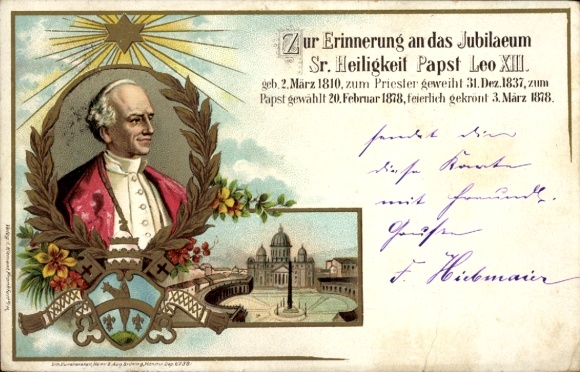 Zur Erinnerung an das Jubilaeum
Sr. Heiligkeit Papst Leo XIII.
geb. 2. März 1810, zum Priester geweiht 31. Dez. 1837, zum
Papst gewählt 20. Februar 1878, feierlich gekrönt 3. März 1878.
sendet dir
diese Karte
mit freundl.
Grüßen
F. Hiebmaier